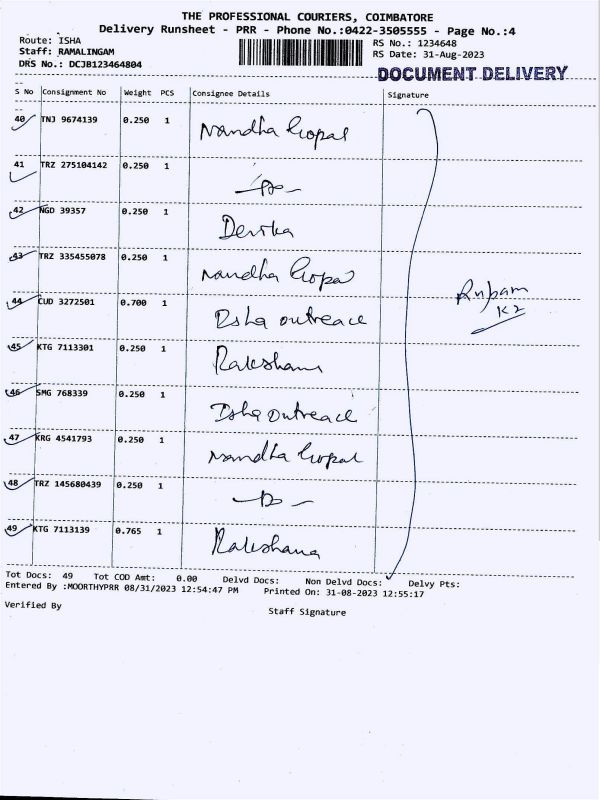 THE PROFESSIONAL COURIERS, COIMBATORE
Delivery Runsheet - PRR - Phone No.:0422-3505555 - Page No.:4
Route: ISHA
Staff: RAMALINGAM
DRS No.: DCJB123464804
RS No.: 1234648
RS Date: 31-Aug-2023
DOCUMENT DELIVERY
S No Consignment No Weight PCS Consignee Details Signature
40 TNJ 9674139 0.250 1 Nandha Gopal
41 TRZ 275104142 0.250 1
42 NGD 39357 0.250 1 Devika
43 TRZ 335455078 0.250 1 Nandha Gopal
44 CUD 3272501 0.700 1 Isha outreach
45 KTG 7113301 0.250 1 Rakshana
46 SMG 768339 0.250 1 Isha outreach
47 KRG 4541793 0.250 1 Nandha Gopal
48 TRZ 145680439 0.250 1
49 KTG 7113139 0.765 1 Rakshana
Rupam
K2
Tot Docs: 49 Tot COD Amt: 0.00 Delvd Docs: Non Delvd Docs: Delvy Pts:
Entered By :MOORTHYPRR 08/31/2023 12:54:47 PM Printed On: 31-08-2023 12:55:17
Verified By
Staff Signature